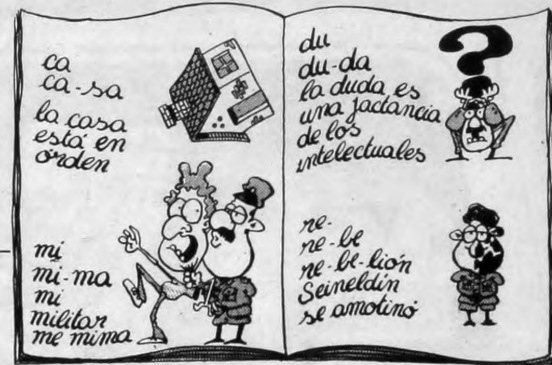 ca
ca-sa
la casa
está en
orden
mi
mi-ma
mi
militar
me mima
du
du-da
la duda es
una jactancia
de los
intelectuales
re-
re-be
re-be-lión
Seineldín
se amotinó